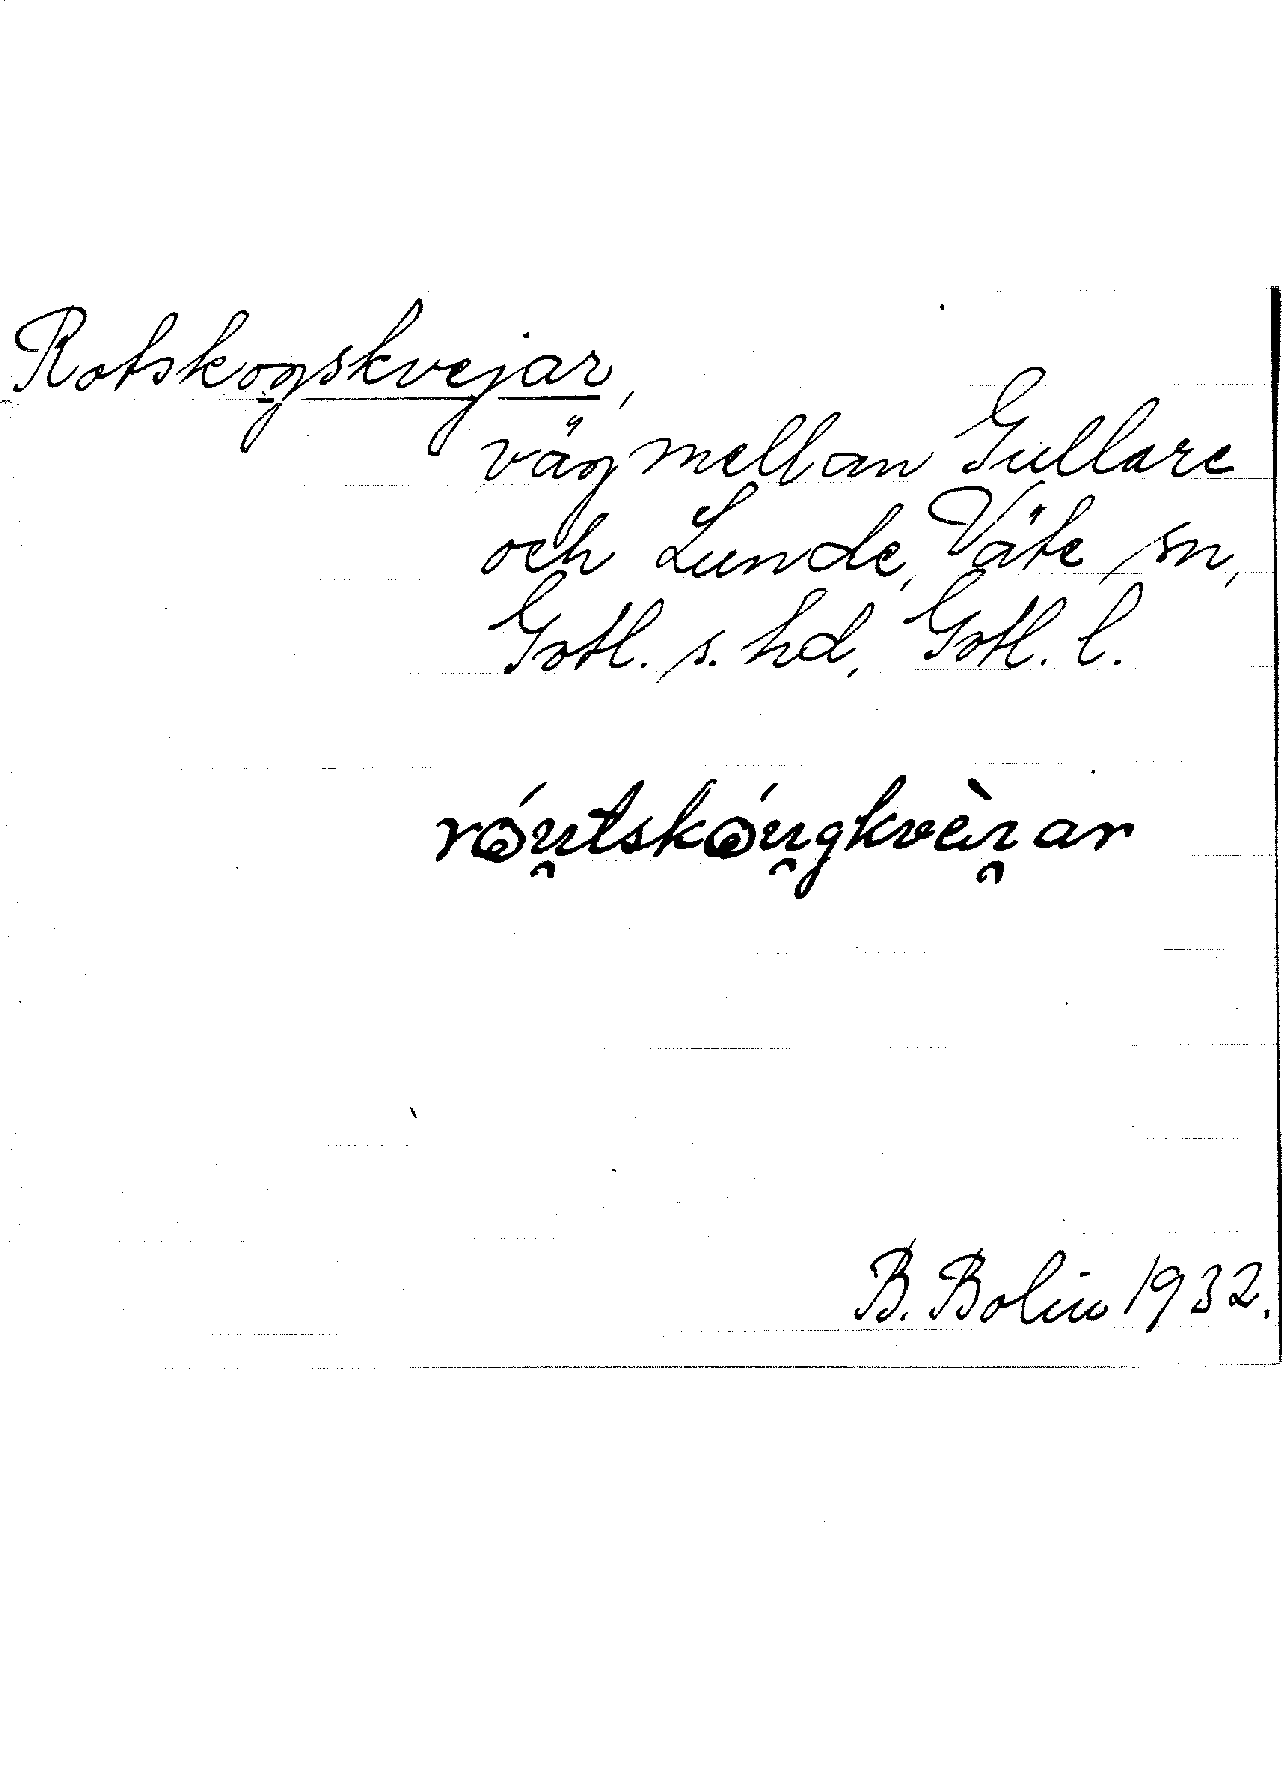 Rotskogskvejar,
väg mellan Gullare
och Lunde, Väte sn,
Gotl. s. hd, Gotl. l.
róu̯tskóu̯gkvèi̯ar
B. Bolin 1932.